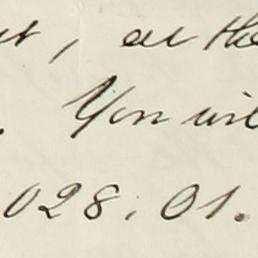 t, as the
. You wil
028.01.